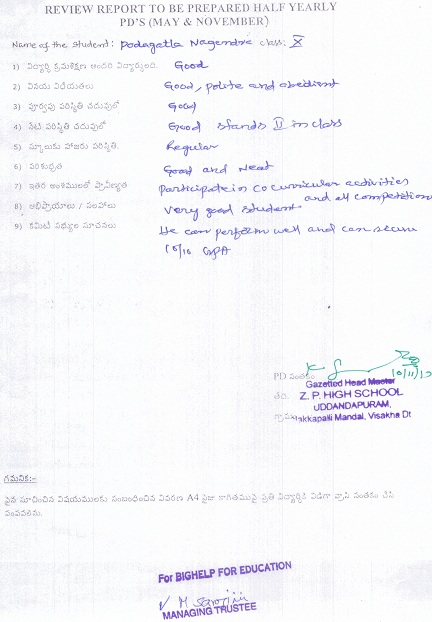 REVIEW REPORT TO BE PREPARED HALF YEARLY
PD'S (MAY & NOVEMBER)
Name of the student: Podagatla Nagendra class: X
1) విద్యార్థి క్రమశిక్షణ అందరి విద్యార్థులందు. Good
2) వినయ విధేయతలు Good, polite and obedient
3) పూర్వపు పరిస్థితి చదువులో Good
4) నేటి పరిస్థితి చదువులో Good stands II in class
5) స్కూలుకు హాజరు పరిస్థితి. Regular
6) పరిశుభ్రత Good and Neat
7) ఇతర అంశములలో ప్రావీణ్యత Participate in cocurricular activities
and all competetions
8) అభిప్రాయాలు / సలహాలు Very good student.
9) కమిటీ సభ్యుల సూచనలు He can perform well and can secure
10/10 GPA
PD సంతకం
Gazetted Head Master
తేది: Z. P. HIGH SCHOOL
UDDANDAPURAM,
గ్రామం Nakkapalli Mandal, Visakha Dt
గమనిక:-
పైన సూచించిన విషయములకు సంబంధించిన వివరణ A4 సైజు కాగితముపై ప్రతి విద్యార్థికి విడిగా వ్రాసి సంతకం చేసి
పంపవలెను.
For BIGHELP FOR EDUCATION
V M Sarojini
MANAGING TRUSTEE